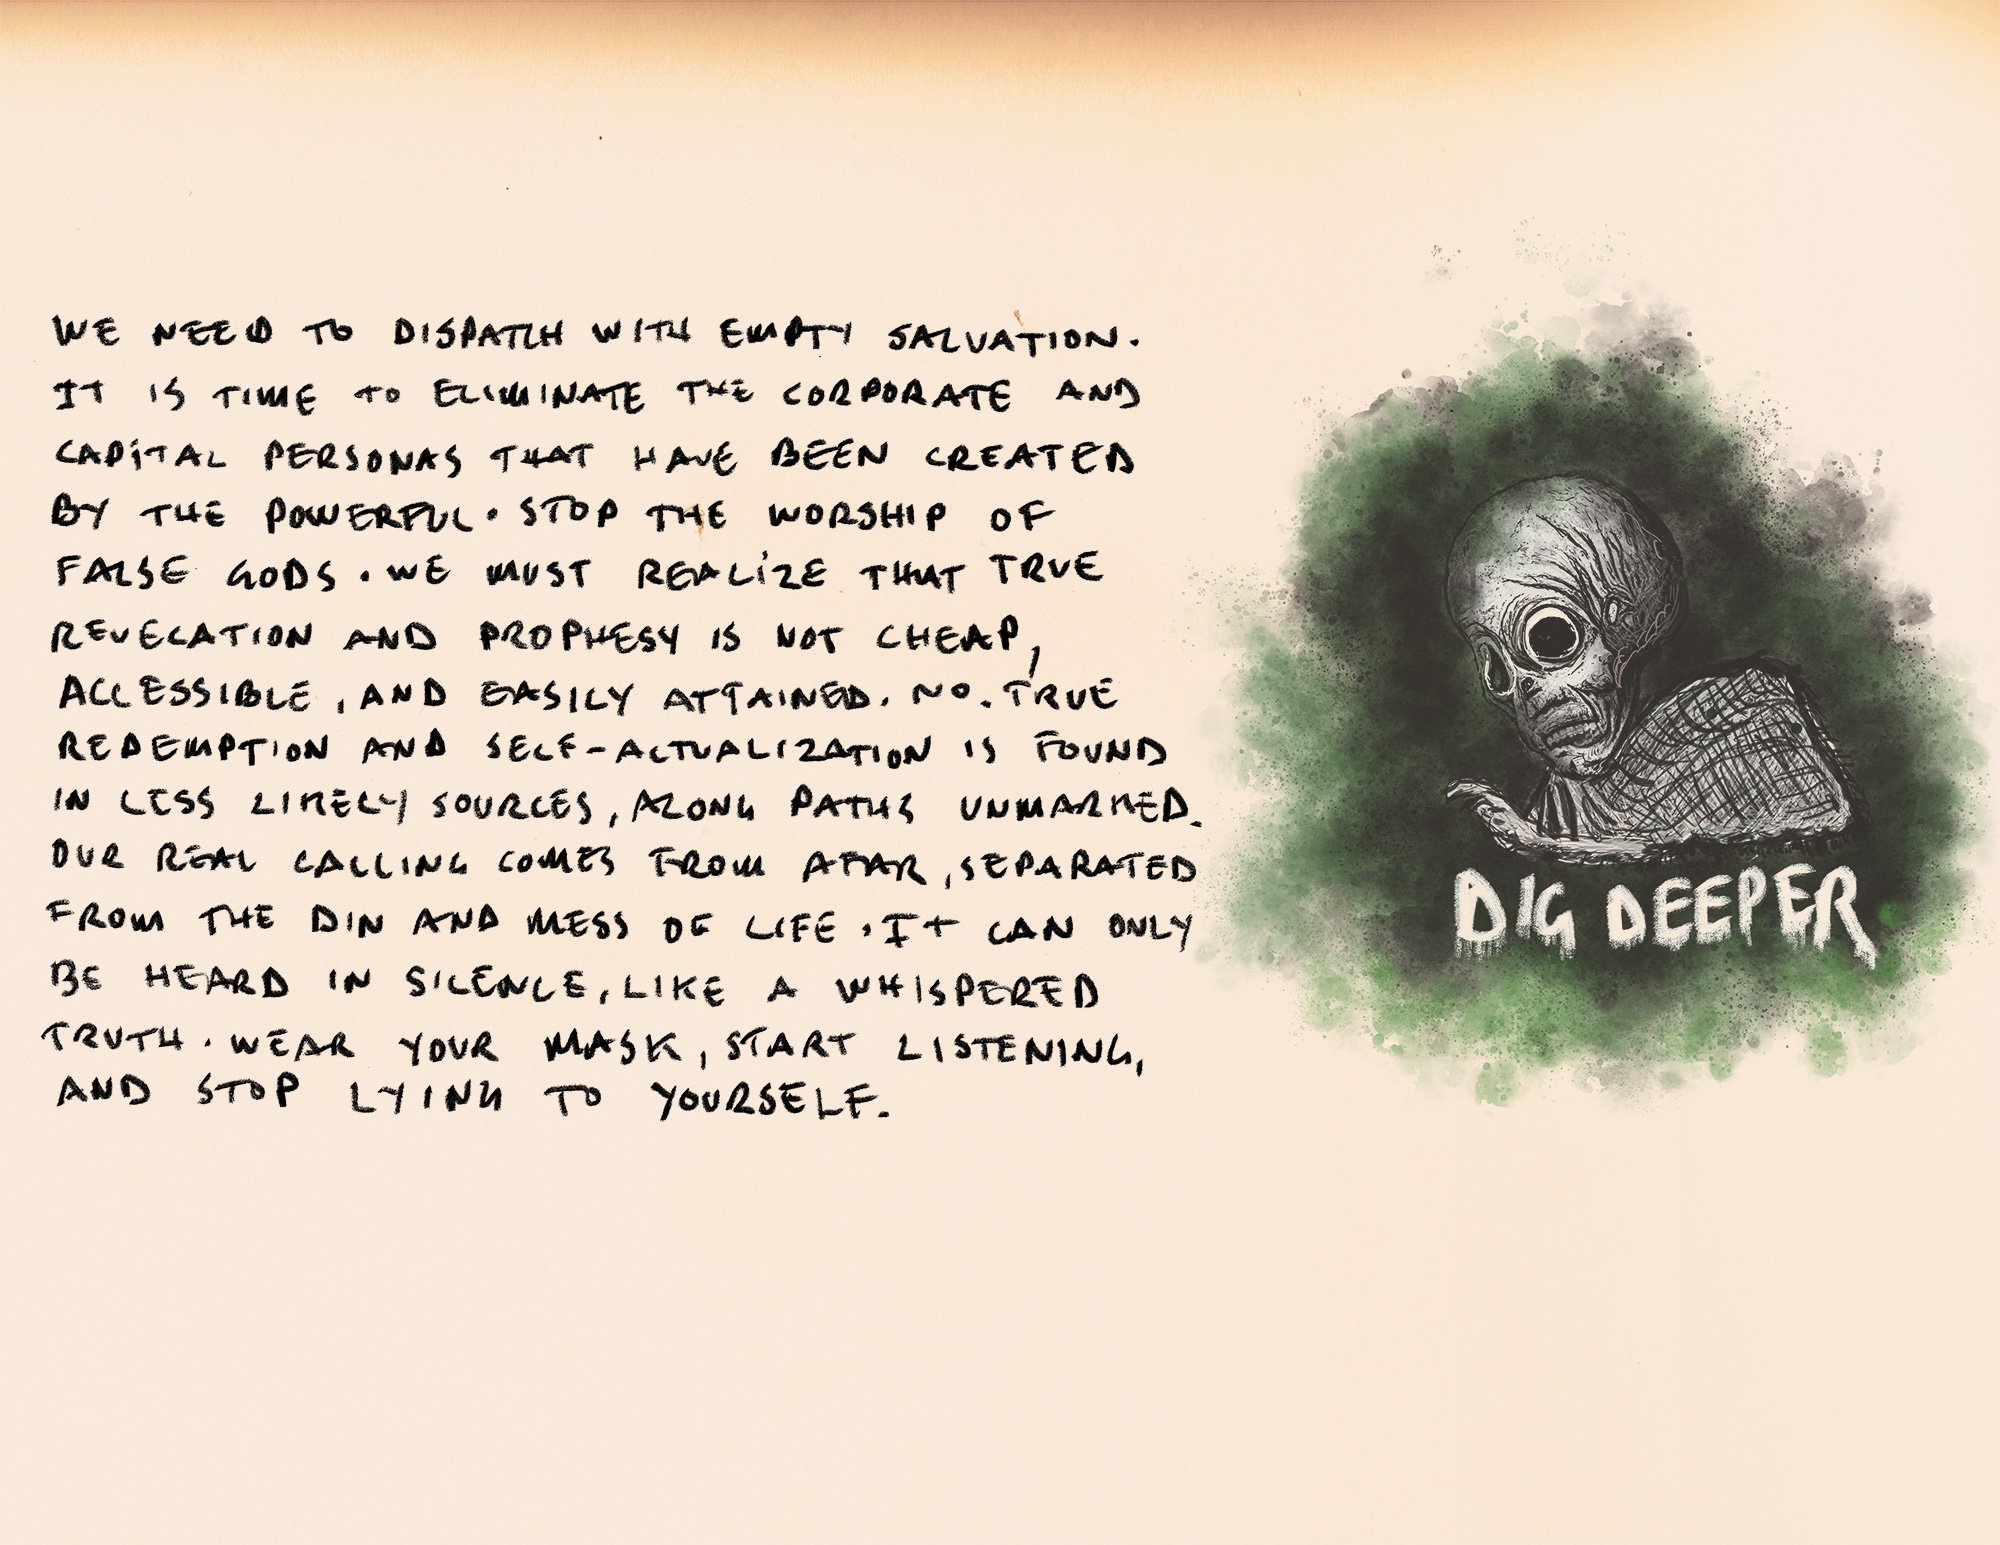 WE NEED TO DISPATCH WITH EMPTY SALVATION.
IT IS TIME TO ELIMINATE THE CORPORATE AND
CAPITAL PERSONAS THAT HAVE BEEN CREATED
BY THE POWERFUL. STOP THE WORSHIP OF
FALSE GODS. WE MUST REALIZE THAT TRUE
REVELATION AND PROPHESY IS NOT CHEAP,
ACCESSIBLE, AND EASILY ATTAINED. NO. TRUE
REDEMPTION AND SELF-ACTUALIZATION IS FOUND
IN LESS LIKELY SOURCES, ALONG PATHS UNMARKED.
OUR REAL CALLING COMES FROM AFAR, SEPARATED
FROM THE DIN AND MESS OF LIFE. IT CAN ONLY
BE HEARD IN SILENCE, LIKE A WHISPERED
TRUTH. WEAR YOUR MASK, START LISTENING,
AND STOP LYING TO YOURSELF.
DIG DEEPER